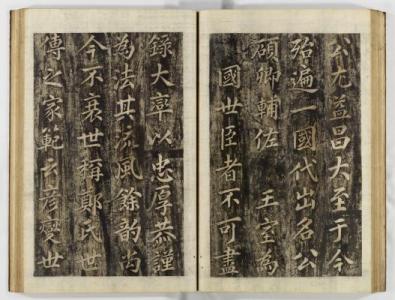 公尤益昌大至于今
殆遍一國代出名公
碩卿輔佐　王室為
國世臣者不可盡
錄大率以忠厚恭謹
為法其流風餘韵尚
今不衰世稱鄭氏世
傳之家範云彦變世